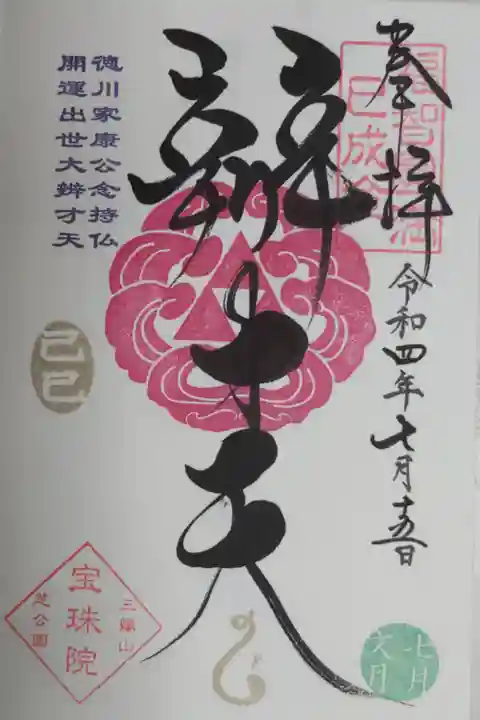 奉拝
福智円満
巳成金
令和四年七月十五日
辨才天
徳川家康公念持仏
開運出世大辨才天
己巳
三縁山
宝珠院
芝公園
七月
文月